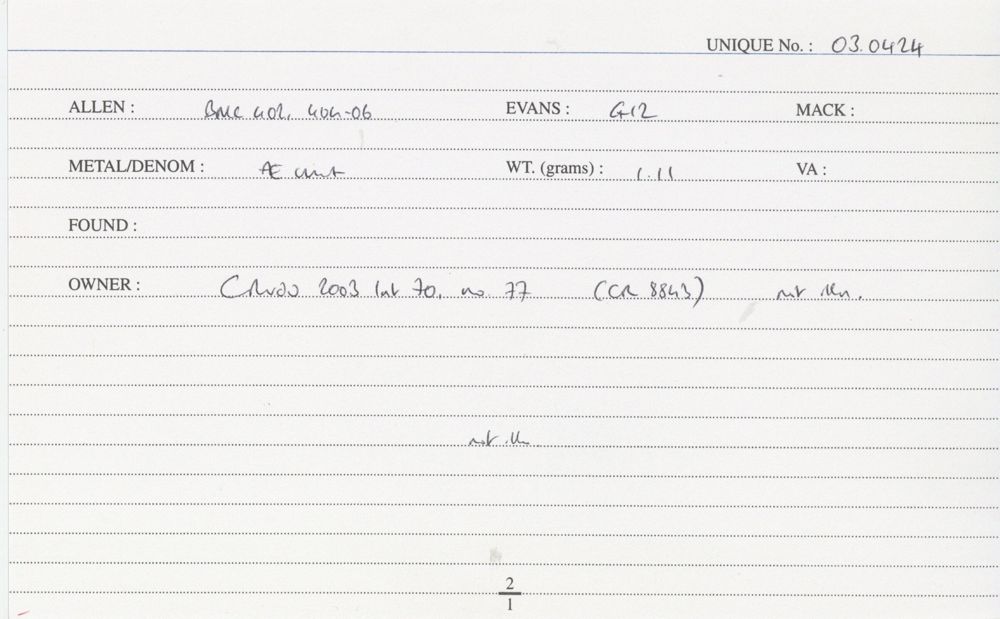 UNIQUE No. : 03.0424
ALLEN : BMC 402, 404-06 EVANS : G12 MACK :
METAL/DENOM : Æ unit WT. (grams) : 1.11 VA :
FOUND :
OWNER : 2003 list 70, no. 77 (CR 8843) not illn.
not illn
2
1